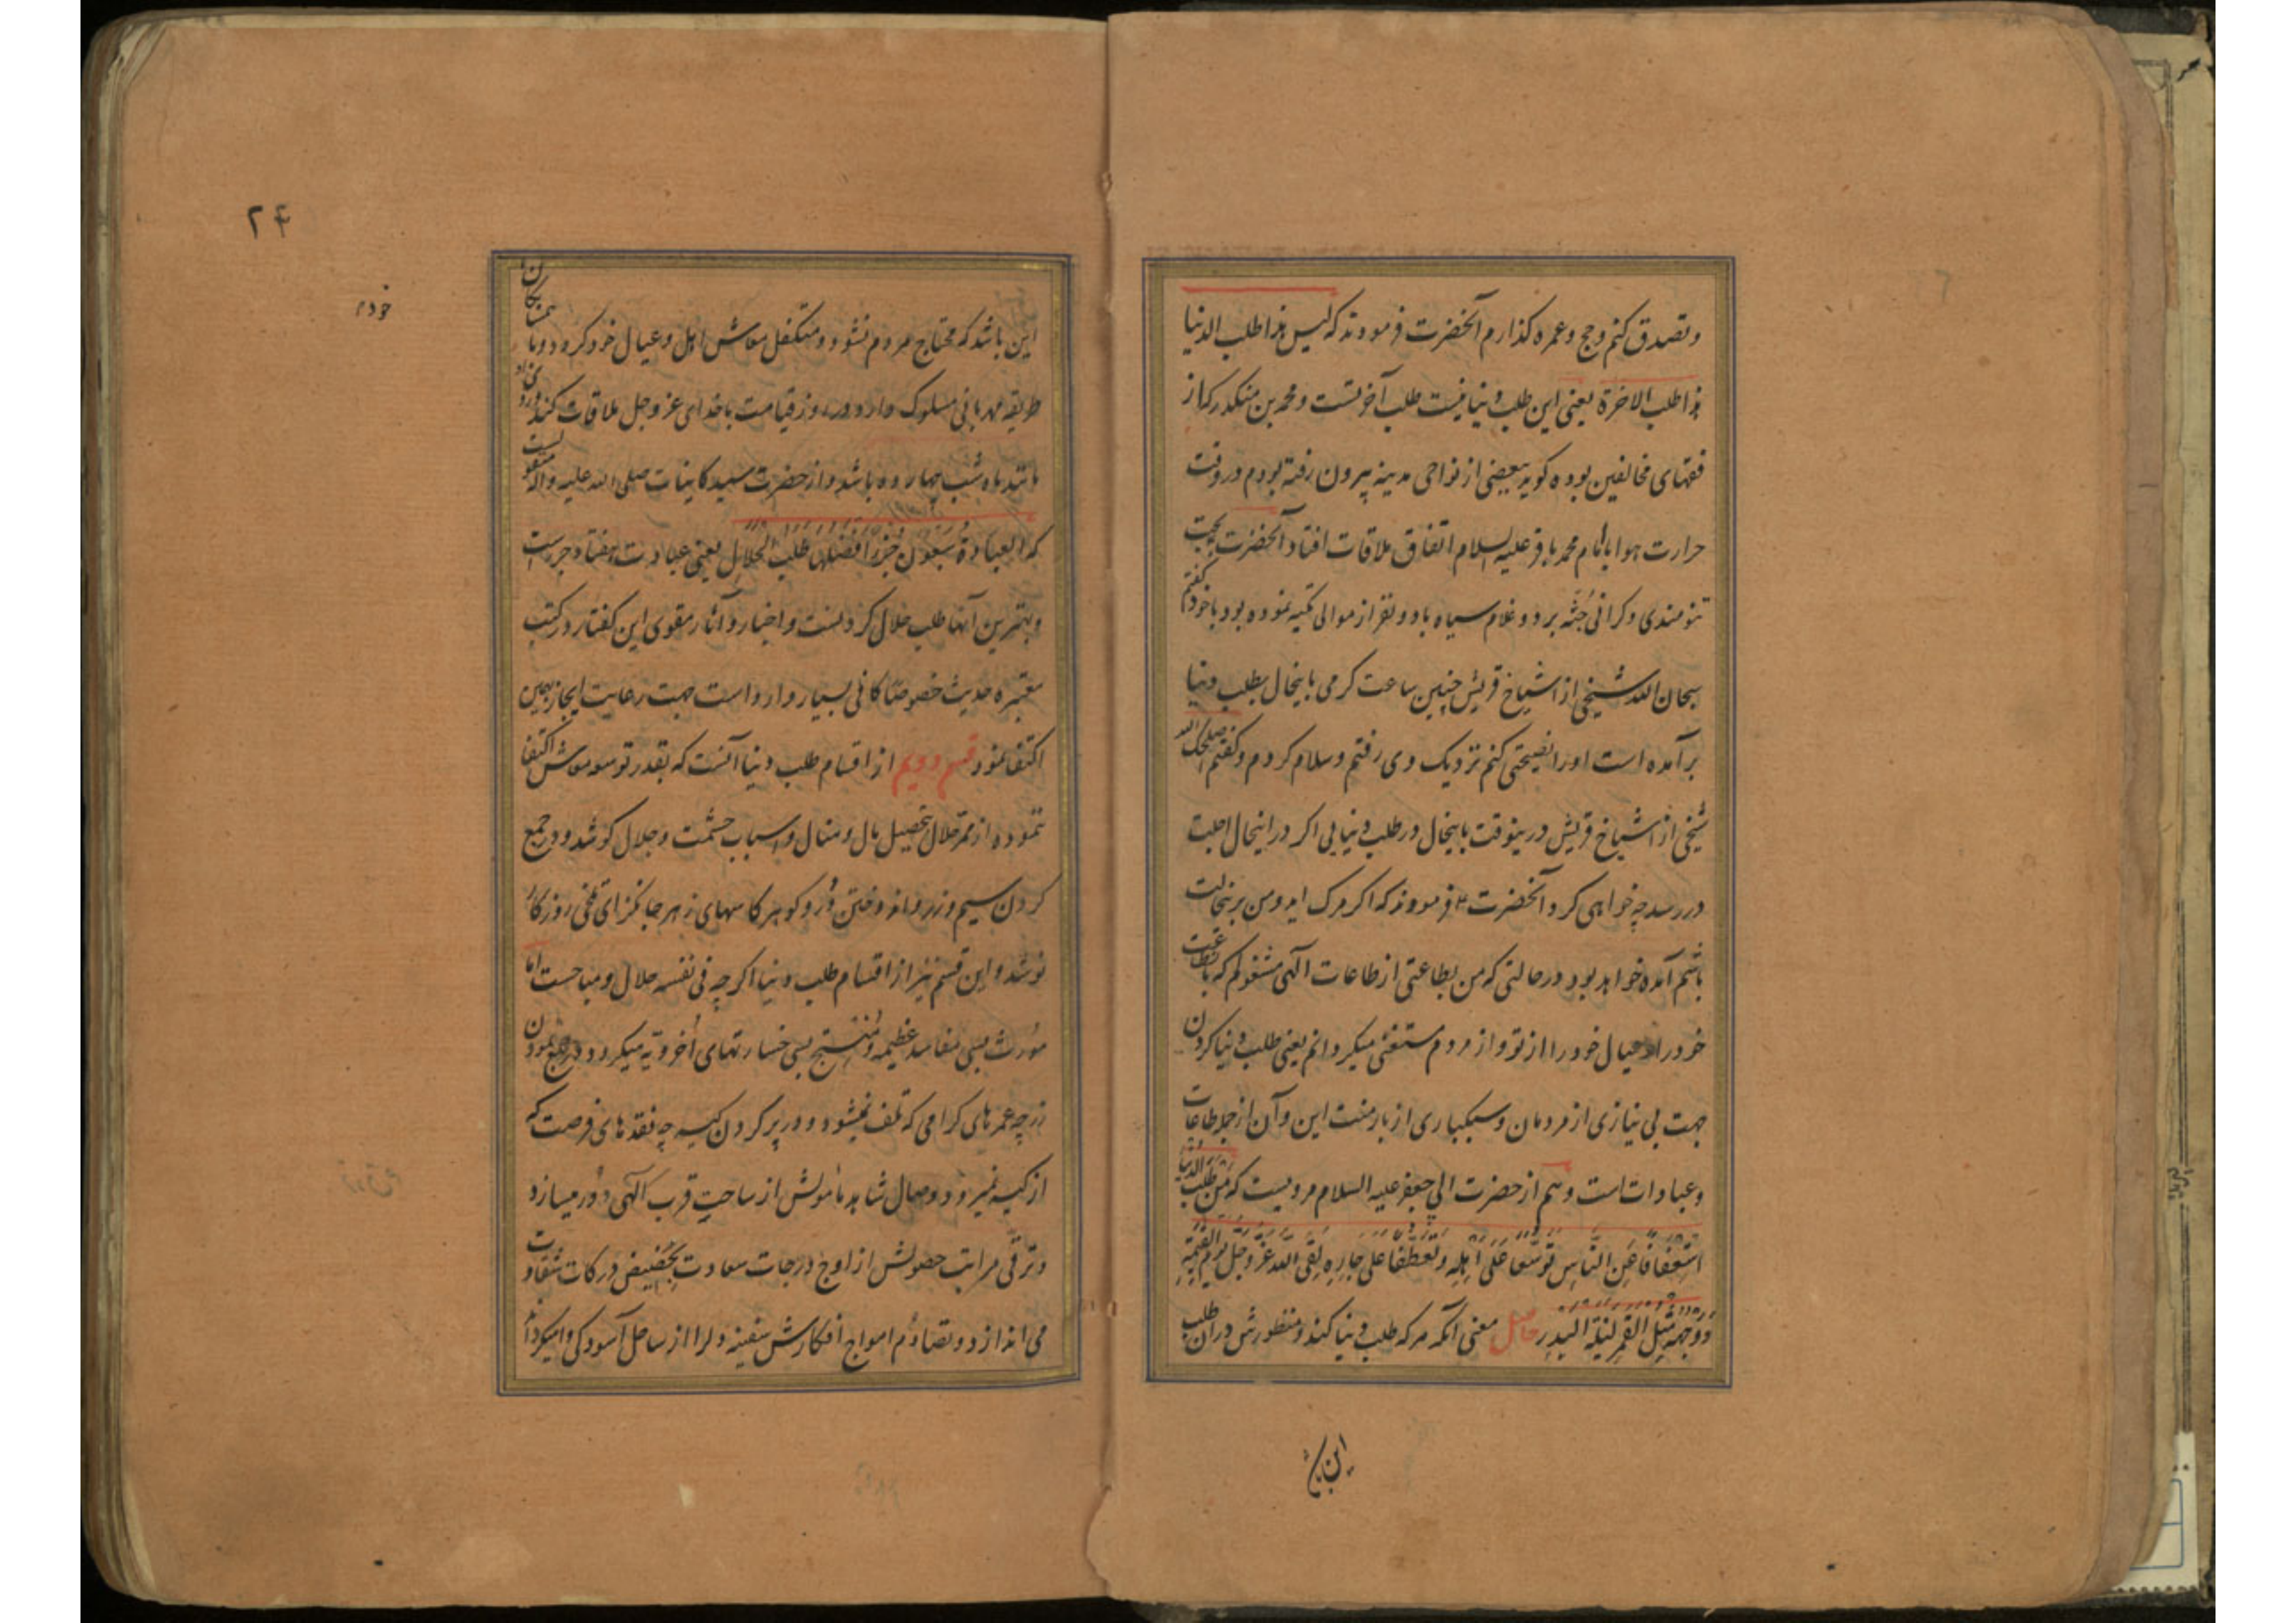 وتصدق کنم وحج وعمره کذارم آنحضرت فرمودند که لیس هذا طلب الدنیا
هذا طلب الاخرة یعنی این طلب دنیا نیست طلب آخرتست ومحمد بن منکدر که از
فقهای مخالفین بوده کوید ببعضی از نواحی مدینه بیرون رفته بودم در وقت
حرارت هوا با امام محمد باقر علیه السلام اتفاق ملاقات افتاد آنحضرت بجهت
تنومندی وکرانی جثه بر دو غلام سیاه یا دو نفر از موالی تکیه نموده بود با خود کفتم
سبحان الله شیخی از اشیاخ قریش چنین ساعت کرمی باینحال بطلب دنیا
برآمده است او را نصیحتی کنم نزدیک وی رفتم وسلام کردم وکفتم اصلحک الله
شیخی از اشیاخ قریش درینوقت باینحال در طلب دنیایی اکر در اینحال اجلت
در رسد چه خواهی کرد آنحضرت ع فرمودند که اکر مرک آید ومن برینحالت
باشم آمده خواهد بود در حالتی که من بطاعتی از طاعات الهی مشغولم که باین طاعت
خود را وعیال خود را از تو واز مردم مستغنی میکردانم یعنی طلب دنیا کردن
جهت بی نیازی از مردمان وسبکباری از بار منت این وآن از جمله طاعات
وعبادات است وهم از حضرت ابی جعفر علیه السلام مرویست که من طلب الدنیا
استعفافا عن الناس وتوسعا علی اهله وتعطفا علی جاره لقی الله عز وجل یوم القیمة
ووجهه مثل القمر لیلة البدر حاصل معنی آنکه هر که طلب دنیا کند ومنظورش در آن طلب
این باش
۲۴
این باشد که محتاج مردم نشود ومتکفل معاش اهل وعیال خود کردد وبا همسایکان
طریقه مهربانی مسلوک دارد در روز قیامت با خدای عز وجل ملاقات کند وروی او
مانند ماه شب چهارده باشد واز حضرت سید کاینات صلی الله علیه وآله منقولست
که العبادة سبعون جزءا افضلها طلب الحلال یعنی عبادت هفتاد جزء است
وبهترین آنها طلب حلال کردنست واخبار وآثار مقوی این کفتار در کتب
معتبره حدیث خصوصا کافی بسیار وارد است جهت رعایت ایجاز بهمین
اکتفا نمود قسم دویم از اقسام طلب دنیا آنست که بقدر توسع معاش اکتفا
ننموده از ممر حلال بتحصیل مال ومنال واسباب حشمت وجلال کوشد ودر جمع
کردن سیم وزر واندوختن در وکوهر کاسهای زهر جانکزای تلخی روزکار
نوشد واین قسم نیز از اقسام طلب دنیا اکر چه فی نفسه حلال ومباحست اما
مورث بسی مفاسد عظیمه ومنتج بسی خسارتهای اخرویه میکردد در جمع نمودن
زر چه عمرهای کرامی که تلف نمیشود ودر پر کردن کیسه چه نقدهای فرصت که
از کیسه نمیرود وصال شاهد مأمولش از ساحت قرب الهی دور میسازد
وترقی مراتب حصولش از اوج درجات سعادت بحضیض درکات شقاوت
می اندازد وتصادم امواج افکارش سفینه دل را از ساحل آسودکی وامیکرداند